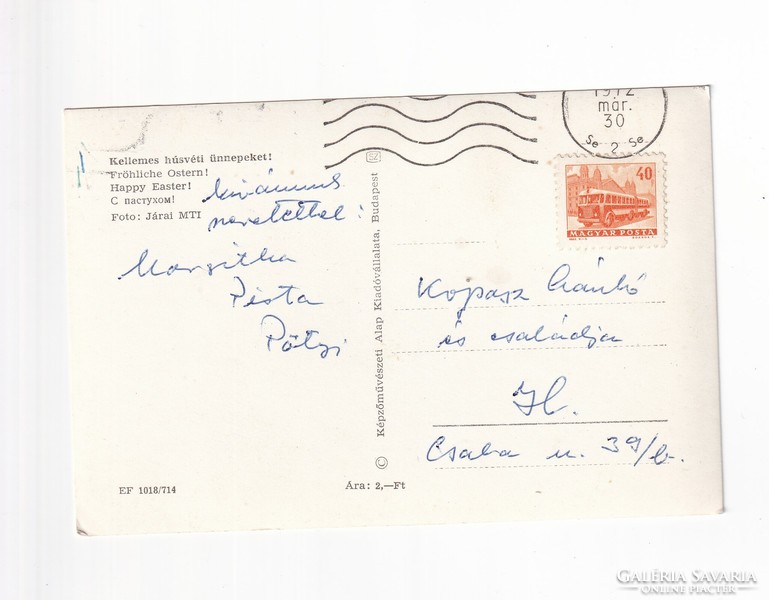 1972
már.
30
2
40
MAGYAR POSTA
Kellemes húsvéti ünnepeket!
Fröhliche Ostern!
Happy Easter!
С пастухом!
Foto: Járai MTI
kívánunk
szeretettel:
Margitka
Pista
Pötyi
SZ
© Képzőművészeti Alap Kiadóvállalata, Budapest
Kopasz
és családja
Csaba u. 39/b.
EF 1018/714
Ára: 2,—Ft
GALÉRIA SAVARIA
ONLINE PIACTÉR